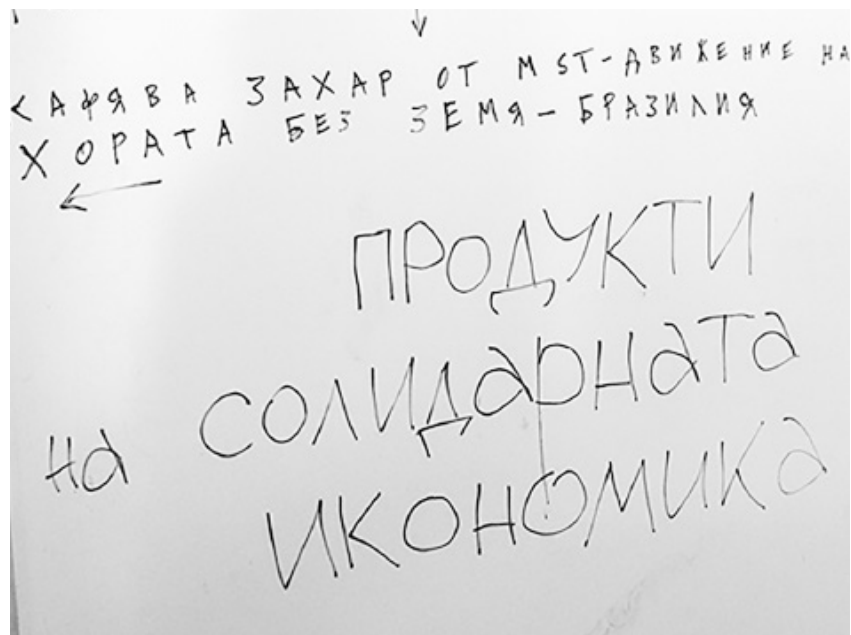 КАФЯВА ЗАХАР ОТ MST-ДВИЖЕНИЕ НА
ХОРАТА БЕЗ ЗЕМЯ-БРАЗИЛИЯ
ПРОДУКТИ
на СОЛИДарНаТа
ИКОНОМИКа